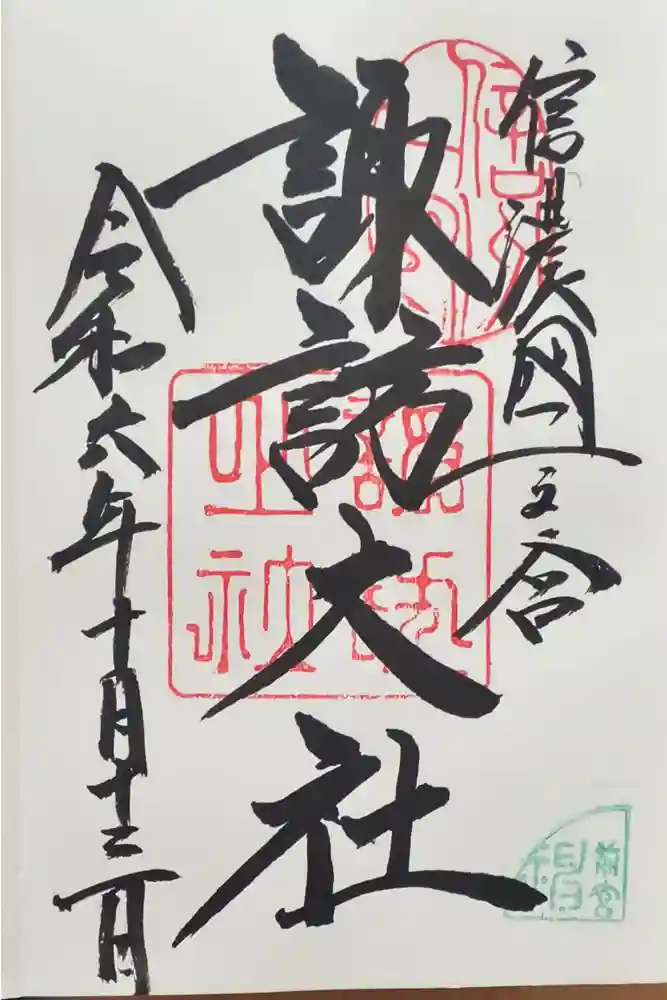 信濃國一之宮
諏訪大社
令和六年十月十二日
前宮